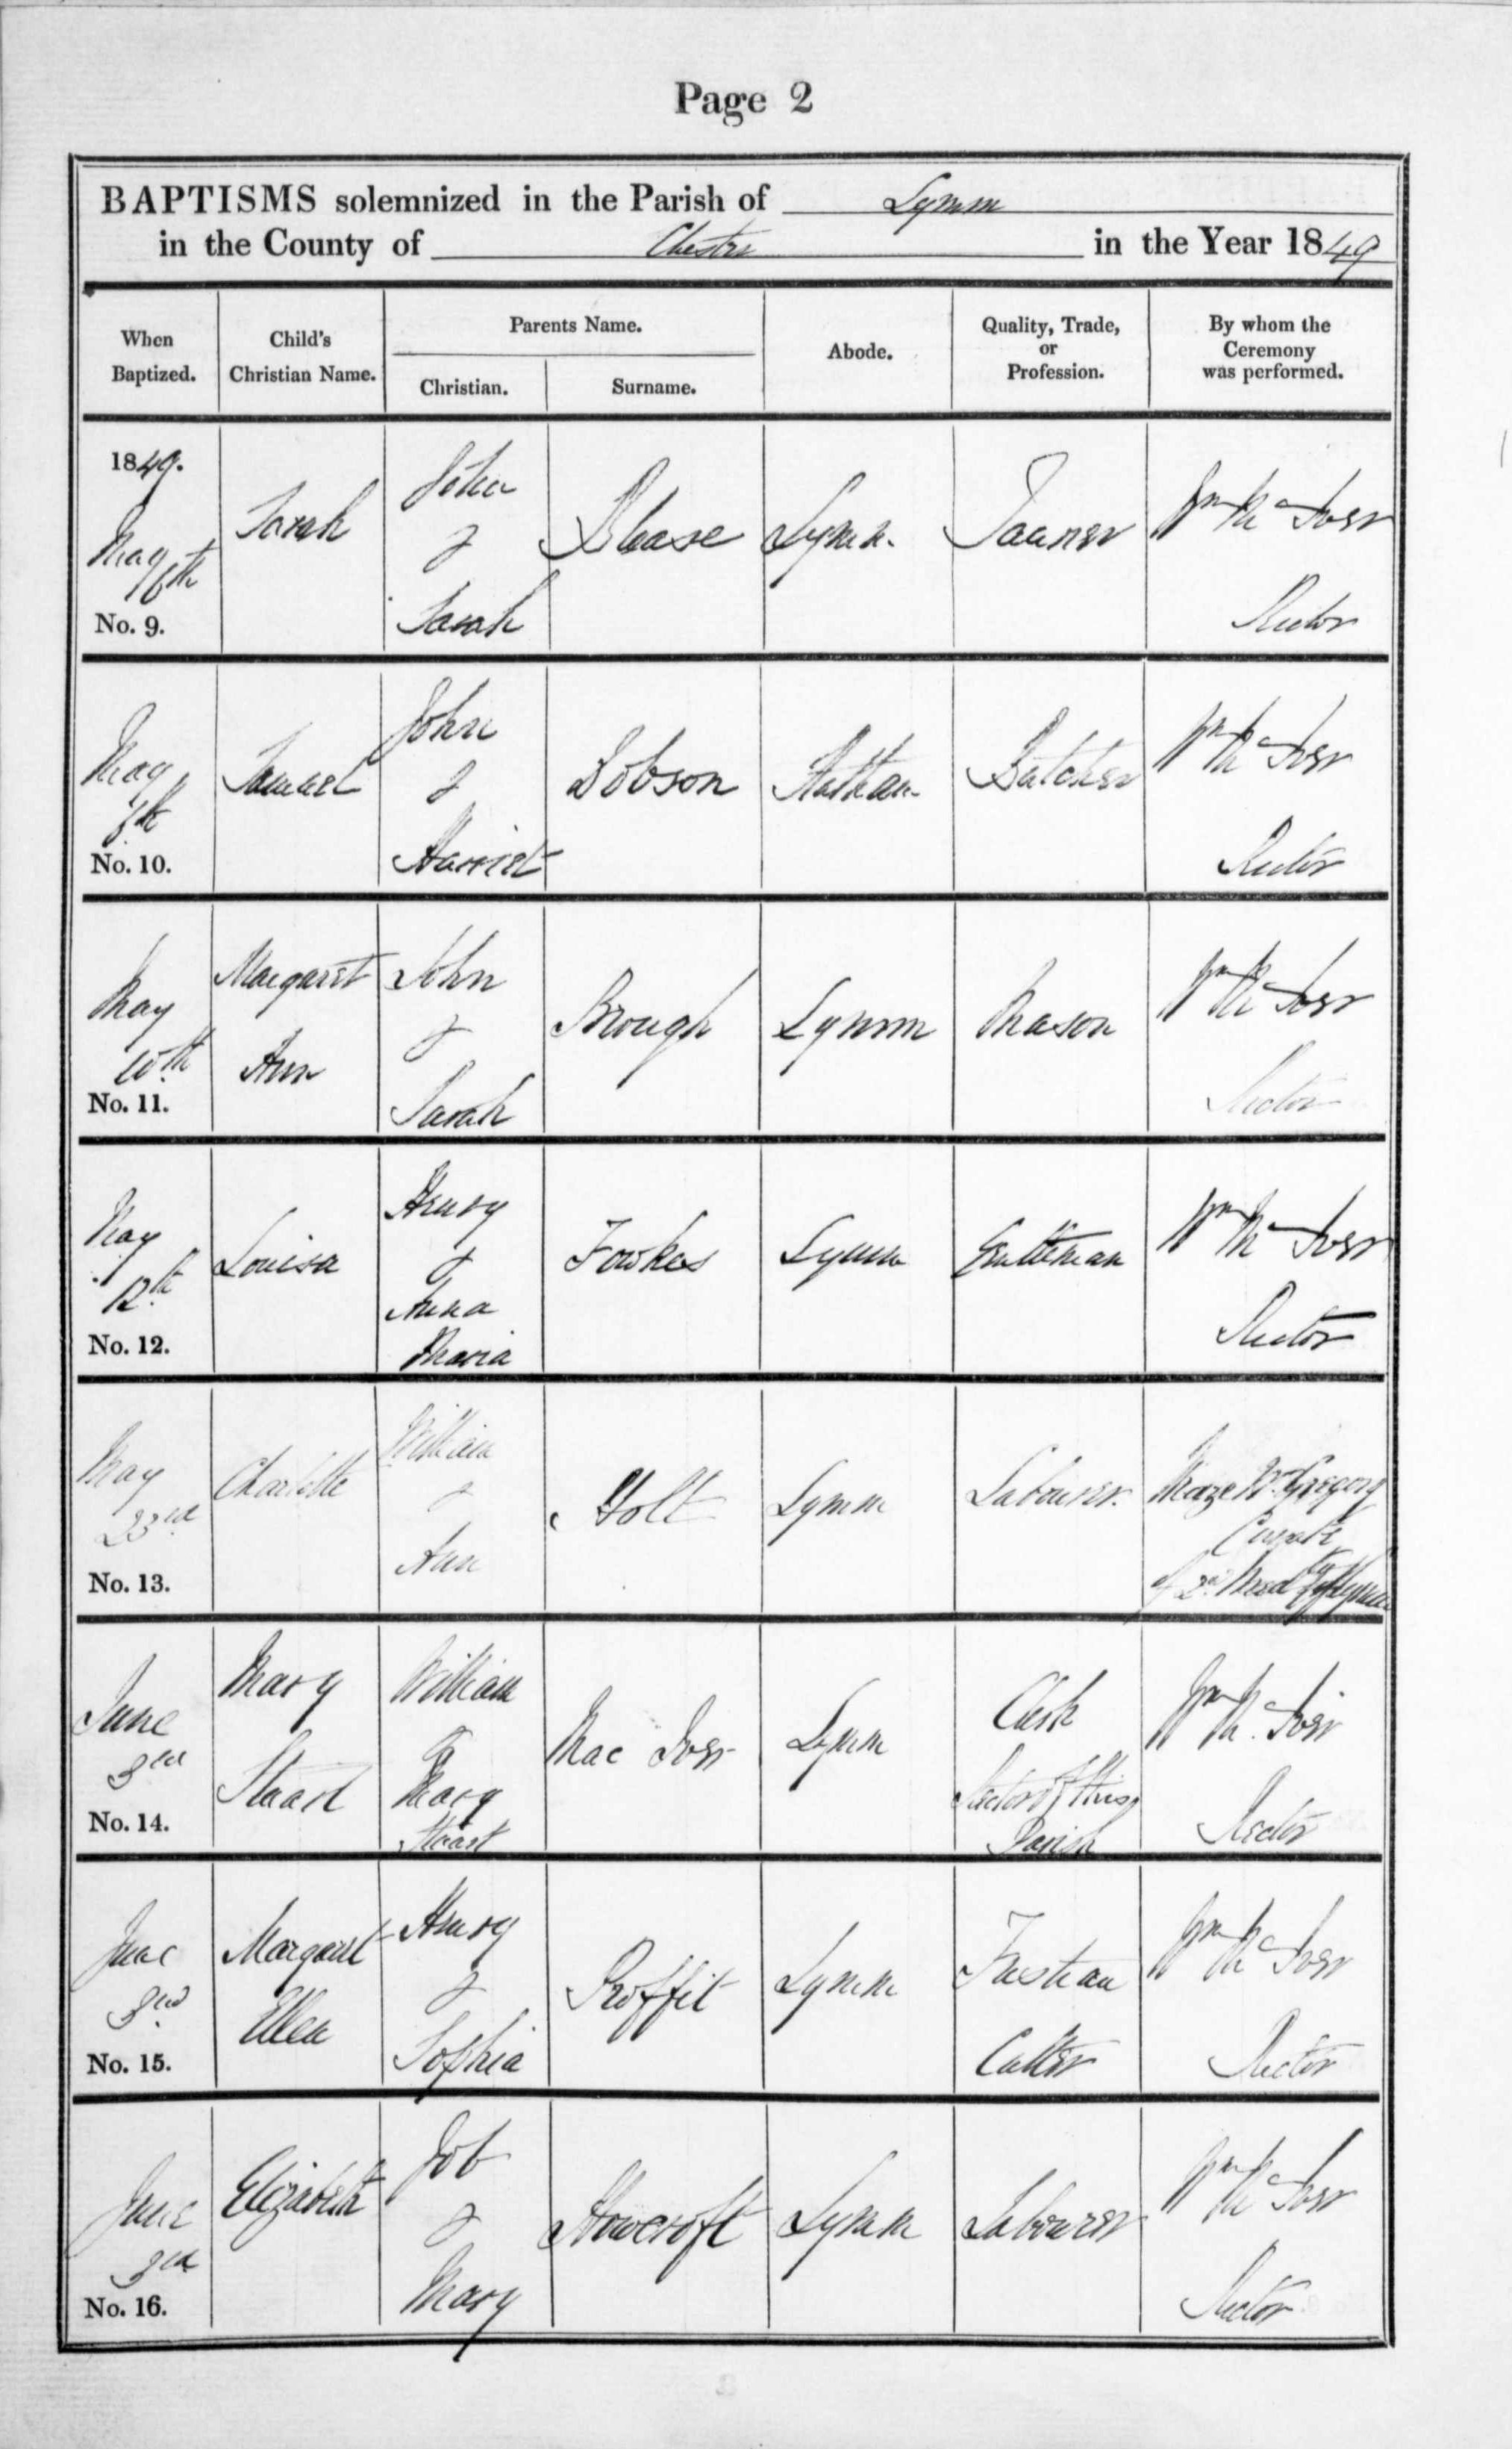 Page 2
BAPTISMS solemnized in the Parish of Lymm
in the County of Chester in the Year 1849
When Baptized.
Child's Christian Name.
Parents Name.
Christian.
Surname.
Abode.
Quality, Trade, or Profession.
By whom the Ceremony was performed.
1849.
May 6th
No. 9.
Sarah
John
&
Sarah
Blease
Lymm.
Tanner
Wm Mc Iver
Rector
May
No. 10.
Samuel
John
&
Harriet
Dobson
Statham
Butcher
Wm Mc Iver
Rector
May
10th
No. 11.
Margaret
Ann
John
&
Sarah
Brough
Lymm
Mason
Wm Mc Iver
Rector
May
12th
No. 12.
Louisa
Henry
&
Anna
Maria
Fowkes
Lymm
Gentleman
Wm Mc Iver
Rector
May
23rd
No. 13.
Charlotte
William
&
Ann
Holt
Lymm
Labourer.
Wm Gregory
Curate
of 2nd of Lymm
June
3rd
No. 14.
Mary
Stuart
William
&
Mary
Stuart
Mac Iver
Lymm
Clerk
Rector of this
Parish
Wm Mc Iver
Rector
June
3rd
No. 15.
Margaret
Ellen
Henry
&
Sophia
Proffit
Lymm
Fustian
Cutter
Wm Mc Iver
Rector
June
3rd
No. 16.
Elizabeth
Job
&
Mary
Howcroft
Lymm
Labourer
Wm Mc Iver
Rector